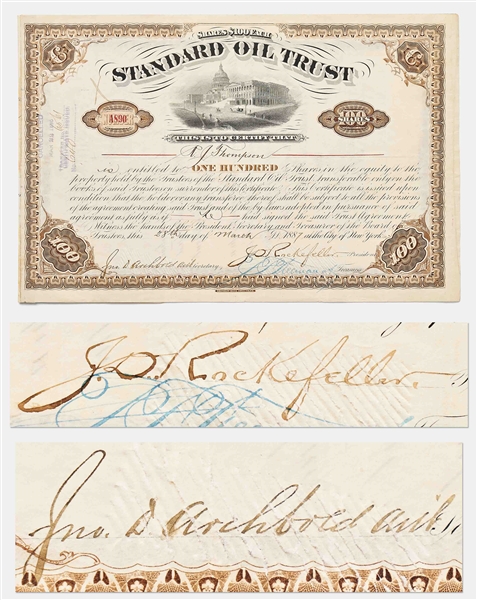 SHARES $100 EACH
STANDARD OIL TRUST
A890
100 Shares
THIS IS TO CERTIFY THAT
Thompson
is entitled to ONE HUNDRED Shares in the equity to the
property held by the Trustees of the Standard Oil Trust, transferable only on the
books of said Trustees on surrender of this Certificate. This Certificate is issued upon
condition that the holder or any transferee thereof shall be subject to all the provisions
of the agreement creating said Trust and of the by-laws adopted in pursuance of said
agreement as fully as if he had signed the said Trust Agreement.
Witness the hands of the President, Secretary and Treasurer of the Board of
Trustees, this 28th day of March 1887 in the City of New York.
Jno. D Archbold Secretary. J.D. Rockefeller President
Treasurer
100 100
J.D. Rockefeller
Jno. D Archbold